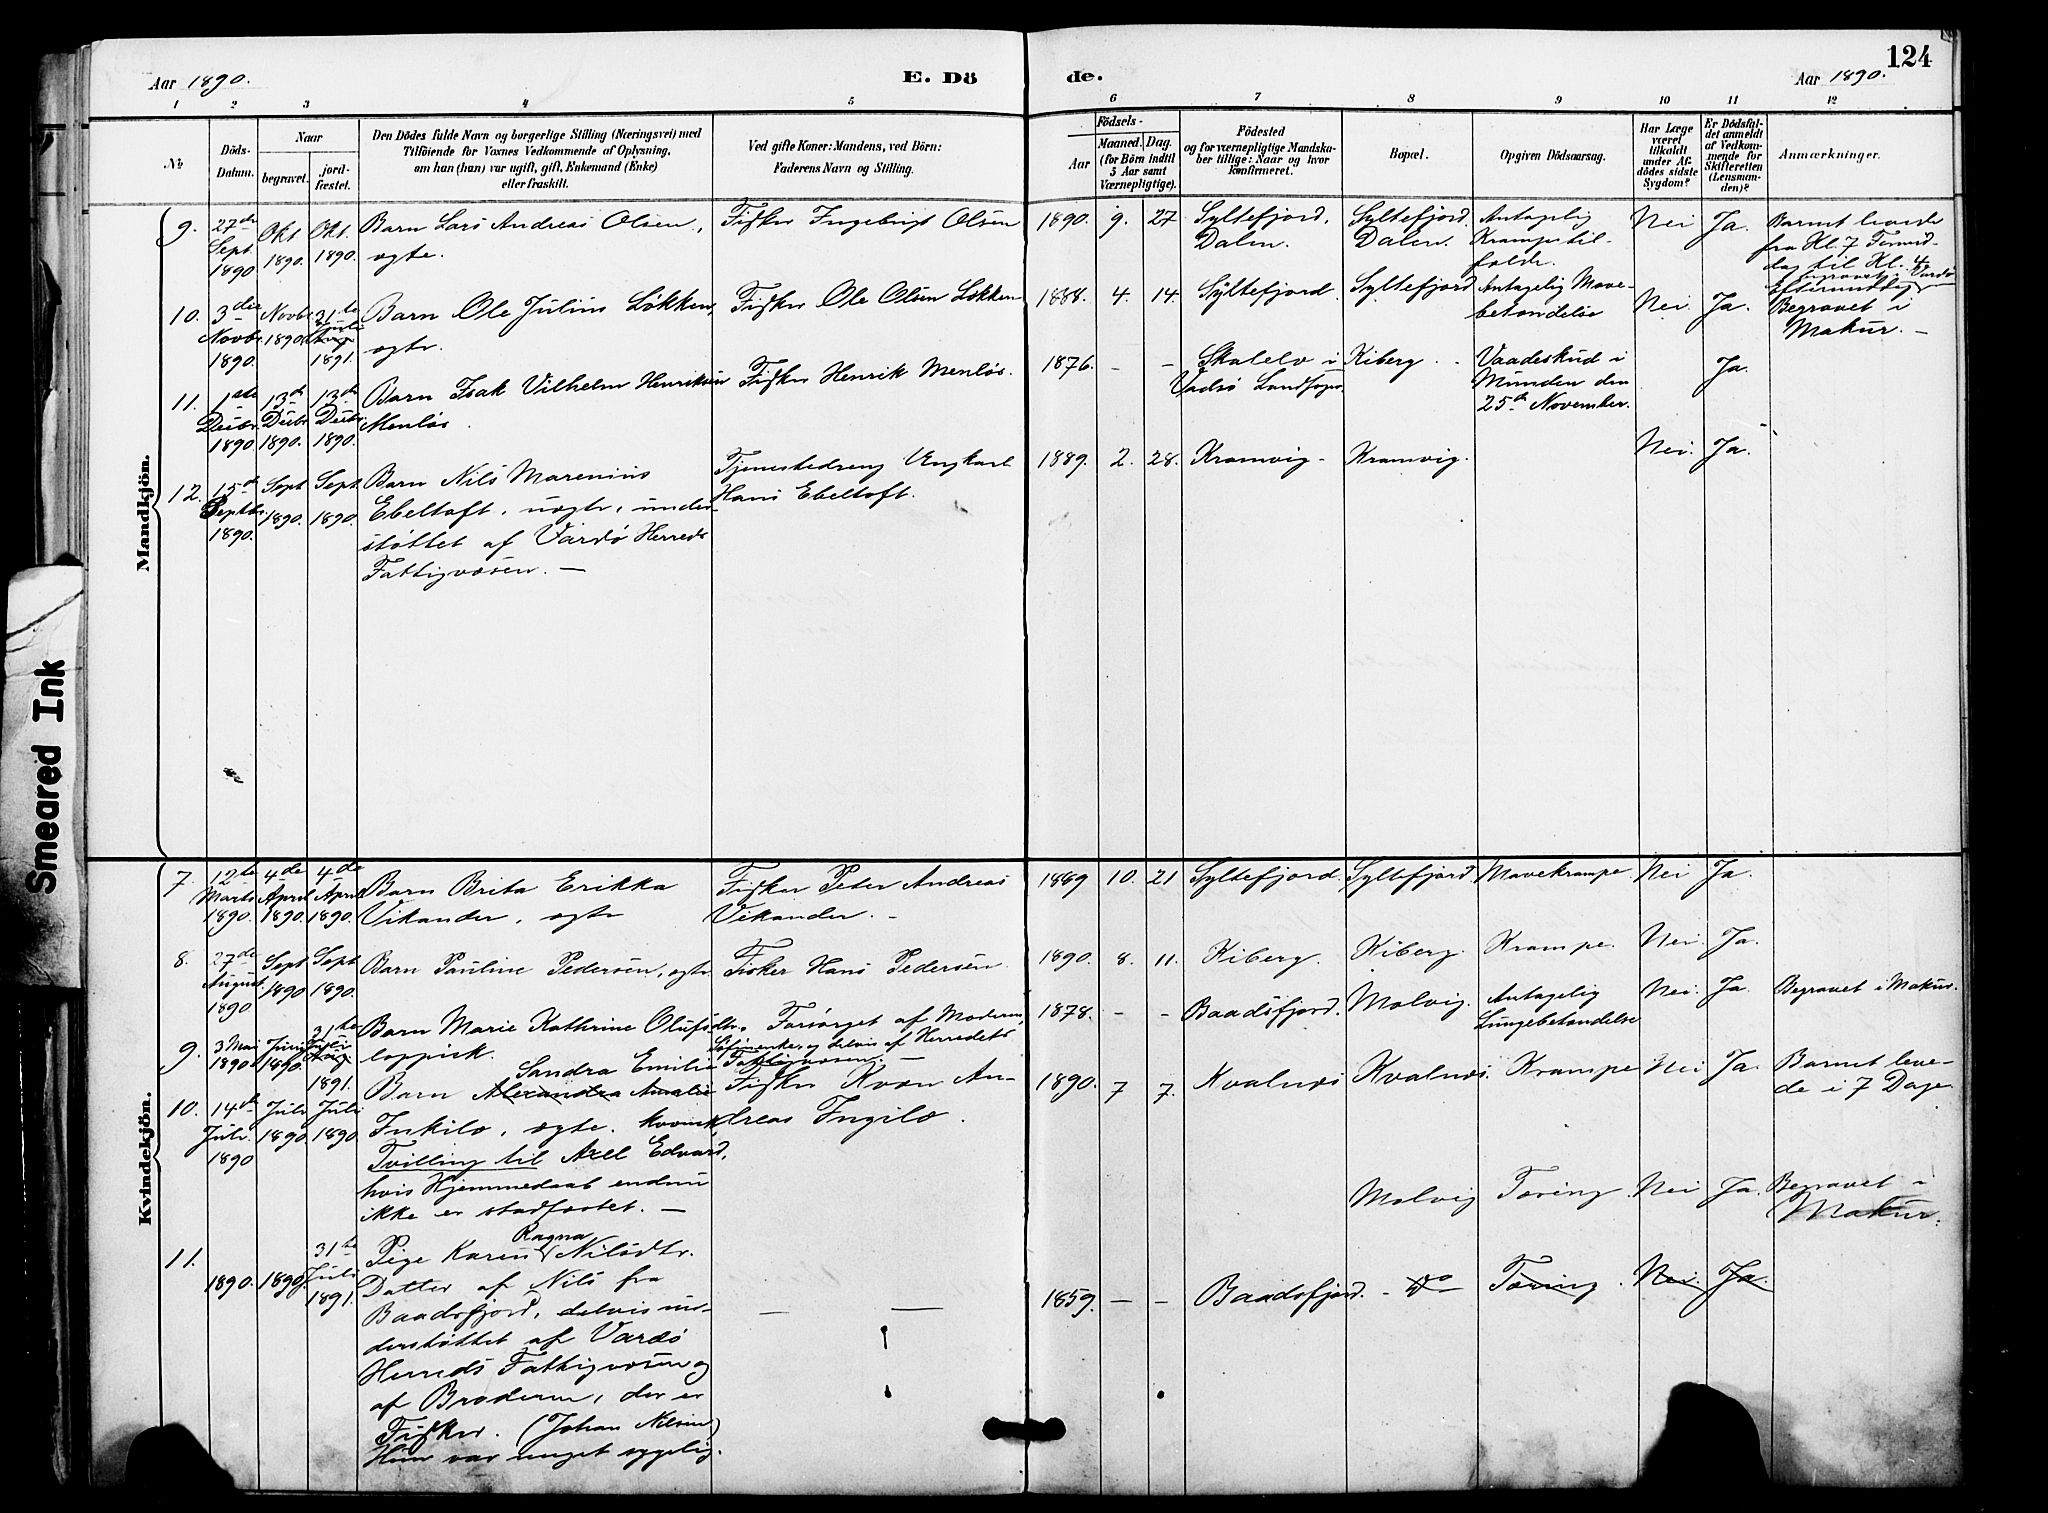 124
Aar 1890.
E. Dö
de.
Aar 1890.
1 2 3 4 5 6 7 8 9 10 11 12
No
Döds-
Datum.
Naar
begravet.
jord-
fæstet.
Den Dödes fulde Navn og borgerlige Stilling (Næringsvei) med
Tilföiende for Voxnes Vedkommende af Oplysning,
om han (hun) var ugift, gift, Enkemand (Enke)
eller fraskilt.
Ved gifte Koner: Mandens, ved Börn:
Faderens Navn og Stilling.
Födsels-
Aar
Maaned. Dag.
(for Börn indtil
5 Aar samt
Værnepligtige).
Födested
og for værnepligtige Mandska-
ber tillige: Naar og hvor
konfirmeret.
Bopæl.
Opgiven Dödsaarsag.
Har Læge
været
tilkaldt
under Af-
dödes sidste
Sygdom?
Er Dödsfal-
det anmeldt
af Vedkom-
mende for
Skifteretten
(Lensman-
den)?
Anmærkninger.
Mandkjön.
9.
27de
Sept.
1890
Okt
1890.
Okt.
1890.
Barn Lars Andreas Olsen,
ægte.
Fisker Ingebrigt Olsen
1890. 9. 27
Syltefjord,
Dalen.
Syltefjord
Dalen.
Antagelig
Krampetil-
fælde.
Nei Ja.
Barnet levede
fra Kl. 7 Formid-
dag til Kl. 4
Eftermiddag
begravet i Vardø
10.
3die
Novbr.
1890.
Novbr.
1890.
31te
Juli
1891.
Barn Ole Julius Løkken,
ægte.
Fisker Ole Olsen Løkken
1888. 4. 14.
Syltefjord.
Syltefjord
Antagelig Mave-
betændelse
Nei. Ja.
Begravet i
Makur. —
11.
1ste
Decbr.
1890
13de
Decbr.
1890.
13de
Decbr.
1890.
Barn Isak Vilhelm Henriksen
Menløs.
Fisker Henrik Menløs.
1876. - -
Skalelv i
Vadsø Landsogn.
Kiberg.
Vaadeskud i
Munden den
25de November.
Ja.
12.
15de
Septbr.
1890.
Sept
1890.
Sept.
1890.
Barn Nils Marenius
Ebeltoft, uægte, under-
støttet af Vardø Herreds
Fattigvæsen. —
Tjenestedreng Ungkarl
Hans Ebeltoft.
1889. 2. 28.
Kramvig.
Kramvig.
Nei. Ja.
Kvindekjön.
7.
12te
Marts
1890.
4de
April
1890.
4de
April
1890.
Barn Brita Erikka
Vikander, ægte
Fisker Peter Andreas
Vikander. —
1889 10. 21
Syltefjord.
Syltefjord.
Mavekrampe
Nei Ja.
8.
27de
August.
1890
Sept
1890
Sept
1890.
Barn Pauline Pedersen, ægte.
Fisker Hans Pedersen
1890. 8. 11.
Kiberg.
Kiberg.
Krampe.
Nei. Ja.
9.
3 Mai
1890
Juni
1890.
31te
Juli
1891.
Barn Marie Kathrine Olufsdtr.
loppisk.
Forsørget af Moderen,
og delvis af Herredets
Fattigvæsen. —
1878. - -
Baadsfjord.
Molvig.
Antagelig
Lungebetændelse
Nei. Ja.
Begravet i Makur.
10.
14de
Juli.
1890
Juli
1890
Juli
1890.
Sandra Emilie
Barn Alexandra Amalie
Inkilæ, ægte. kvænsk,
Tvilling til Axel Edvard,
hvis Hjemmedaab endnu
ikke er stadfæstet. —
Fisker Kvæn An-
dreas Ingilæ.
1890. 7 7.
Kvalnæs
Kvalnæs.
Krampe
Nei Ja.
Barnet leve-
de i 7 Dage
11.
1890.
1890.
31te
Juli
1891.
Ragna
Pige Karen Nilsdtr.
Datter af Nils fra
Baadsfjord, delvis un-
derstøttet af Vardø
Herreds Fattigvæsen og
af Broderen, der er
Fisker. (Johan Nilsen)
Hun var meget sygelig.
— —
1859. — -
Baadsfjord.
Molvig
Tæring
Nei Ja.
Begravet i
Makur.
do
Tæring.
Nei.
Ja.
Smeared Ink